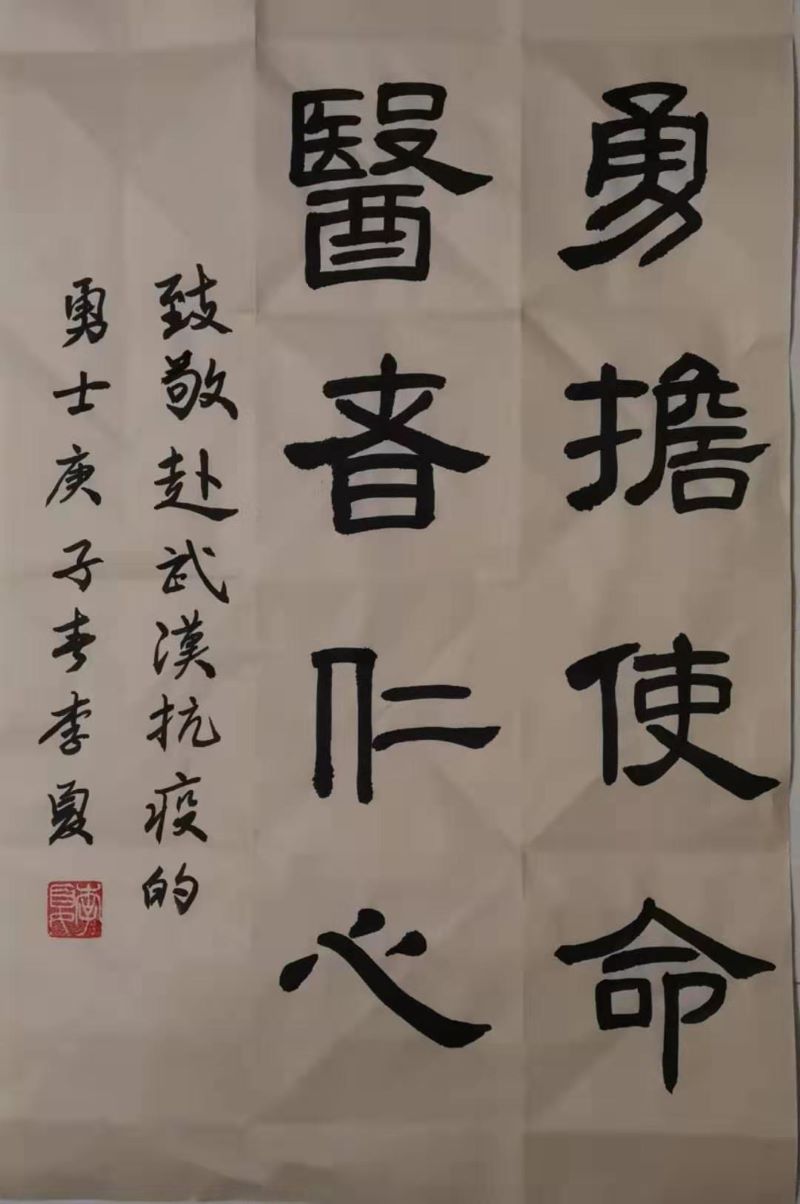 勇擔使命
醫者仁心
致敬赴武漢抗疫的
勇士庚子春李夏